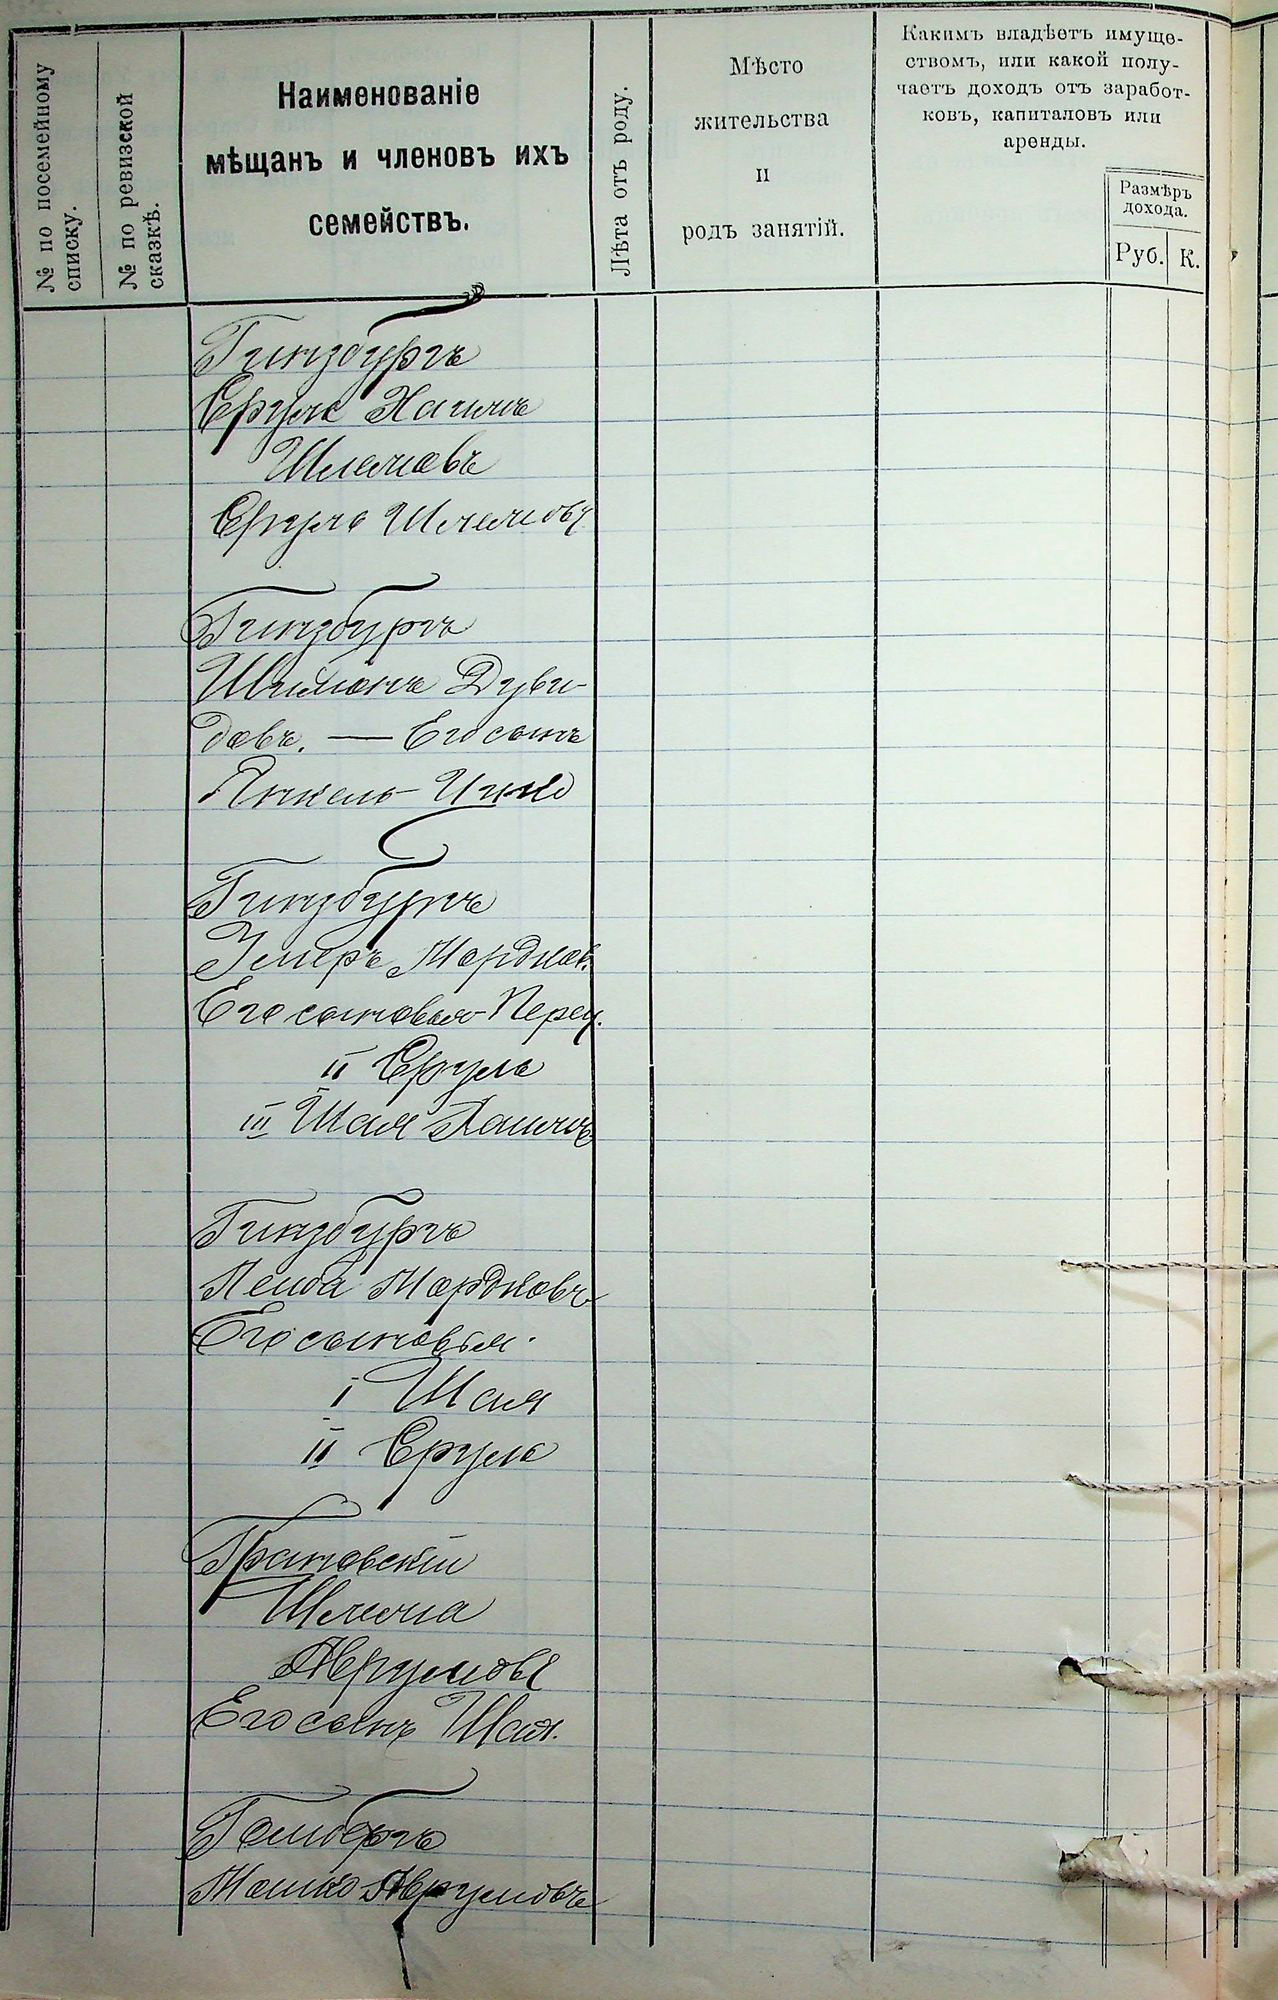 № по посемейному
списку.
№ по ревизской
сказкѣ.
Наименованіе
мѣщанъ и членовъ ихъ
семействъ.
Лѣта отъ роду.
Мѣсто
жительства
и
родъ занятій.
Какимъ владѣетъ имуще-
ствомъ, или какой полу-
чаетъ доходъ отъ заработ-
ковъ, капиталовъ или
аренды.
Размѣръ
дохода.
Руб.
К.
Гинзбургъ
Сруль Хаимъ
Шлемовъ
Сруль Шлемовъ
Гинзбургъ
Шлимонъ Дуви-
довъ. — Его сынъ
Янкель Ицко
Гинзбургъ
Эмеръ Мордков.
Его сыновья Перец.
II Сруль
III Шая Хаимъ
Гинзбургъ
Лейба Мордковъ
Его сыновья.
I Шая
II Сруль
Грановскій
Шлема
Аврумовъ
Его сынъ Шая.
Гольбергъ
Мошко Аврумовъ